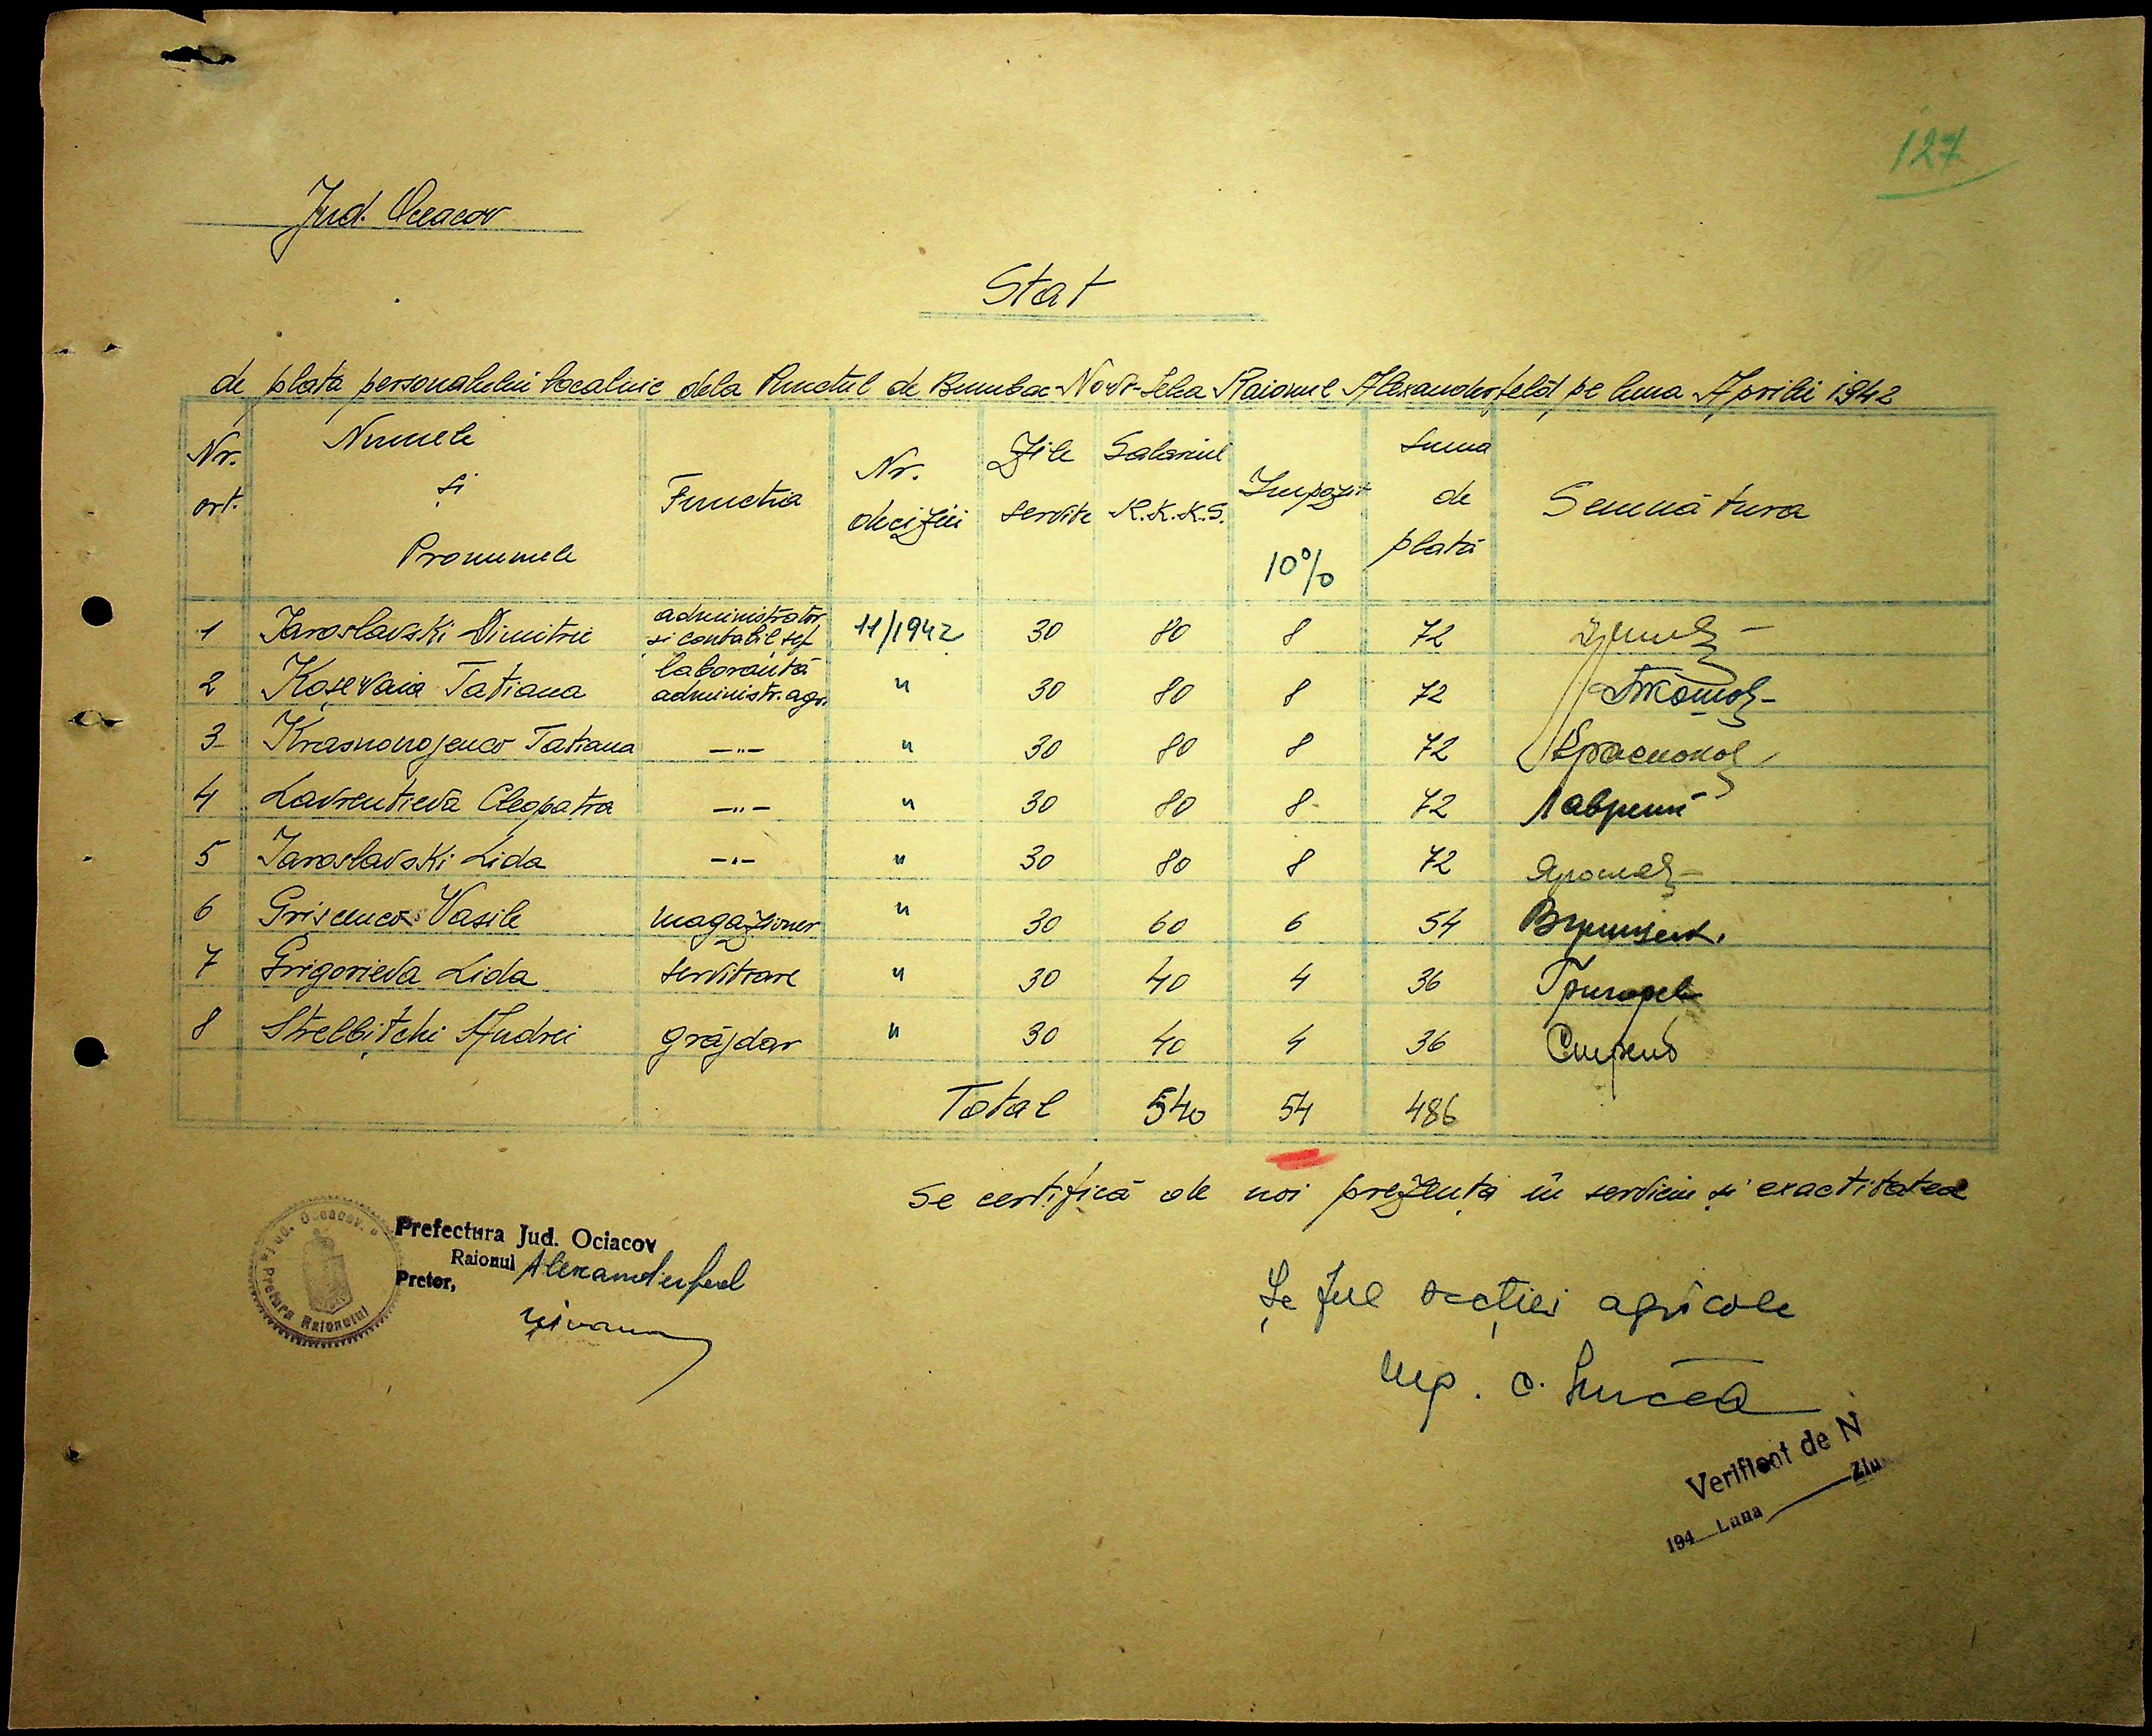 127
Jud. Oceacov
Stat
de plata personalului localnic dela Punctul de Bumbac Novo-Selca Raionul Alexanderfeld pe luna Aprilie 1942
Nr. ort. Numele și Pronumele Functia Nr. deciziei Zile servite Salariul R.K.K.S. Impozit 10% Suma de plată Semnătura
1 Iaroslavski Dimitrie administrator si contabil șef 11/1942 30 80 8 72
2 Koșevaia Tatiana laborantă administr. agr. " 30 80 8 72
3 Krasnonojenco Tatiana —"— " 30 80 8 72 Краснонож
4 Lavrentieva Cleopatra —"— " 30 80 8 72 Лаврент
5 Iaroslavski Lida —"— " 30 80 8 72
6 Grisenco Vasile magazioner " 30 60 6 54
7 Grigorieva Lida servitoare " 30 40 4 36 Григорев
8 Strelbițchi Andrei grăjdar " 30 40 4 36
Total 540 54 486
Se certifică de noi prezența în serviciu și exactitatea
Jud. Oceacov. Pretura Raionului
Prefectura Jud. Ociacov
Raionul Alexanderfeld
Pretor,
Șeful secției agricole
Verificat de N
194 Luna Ziu